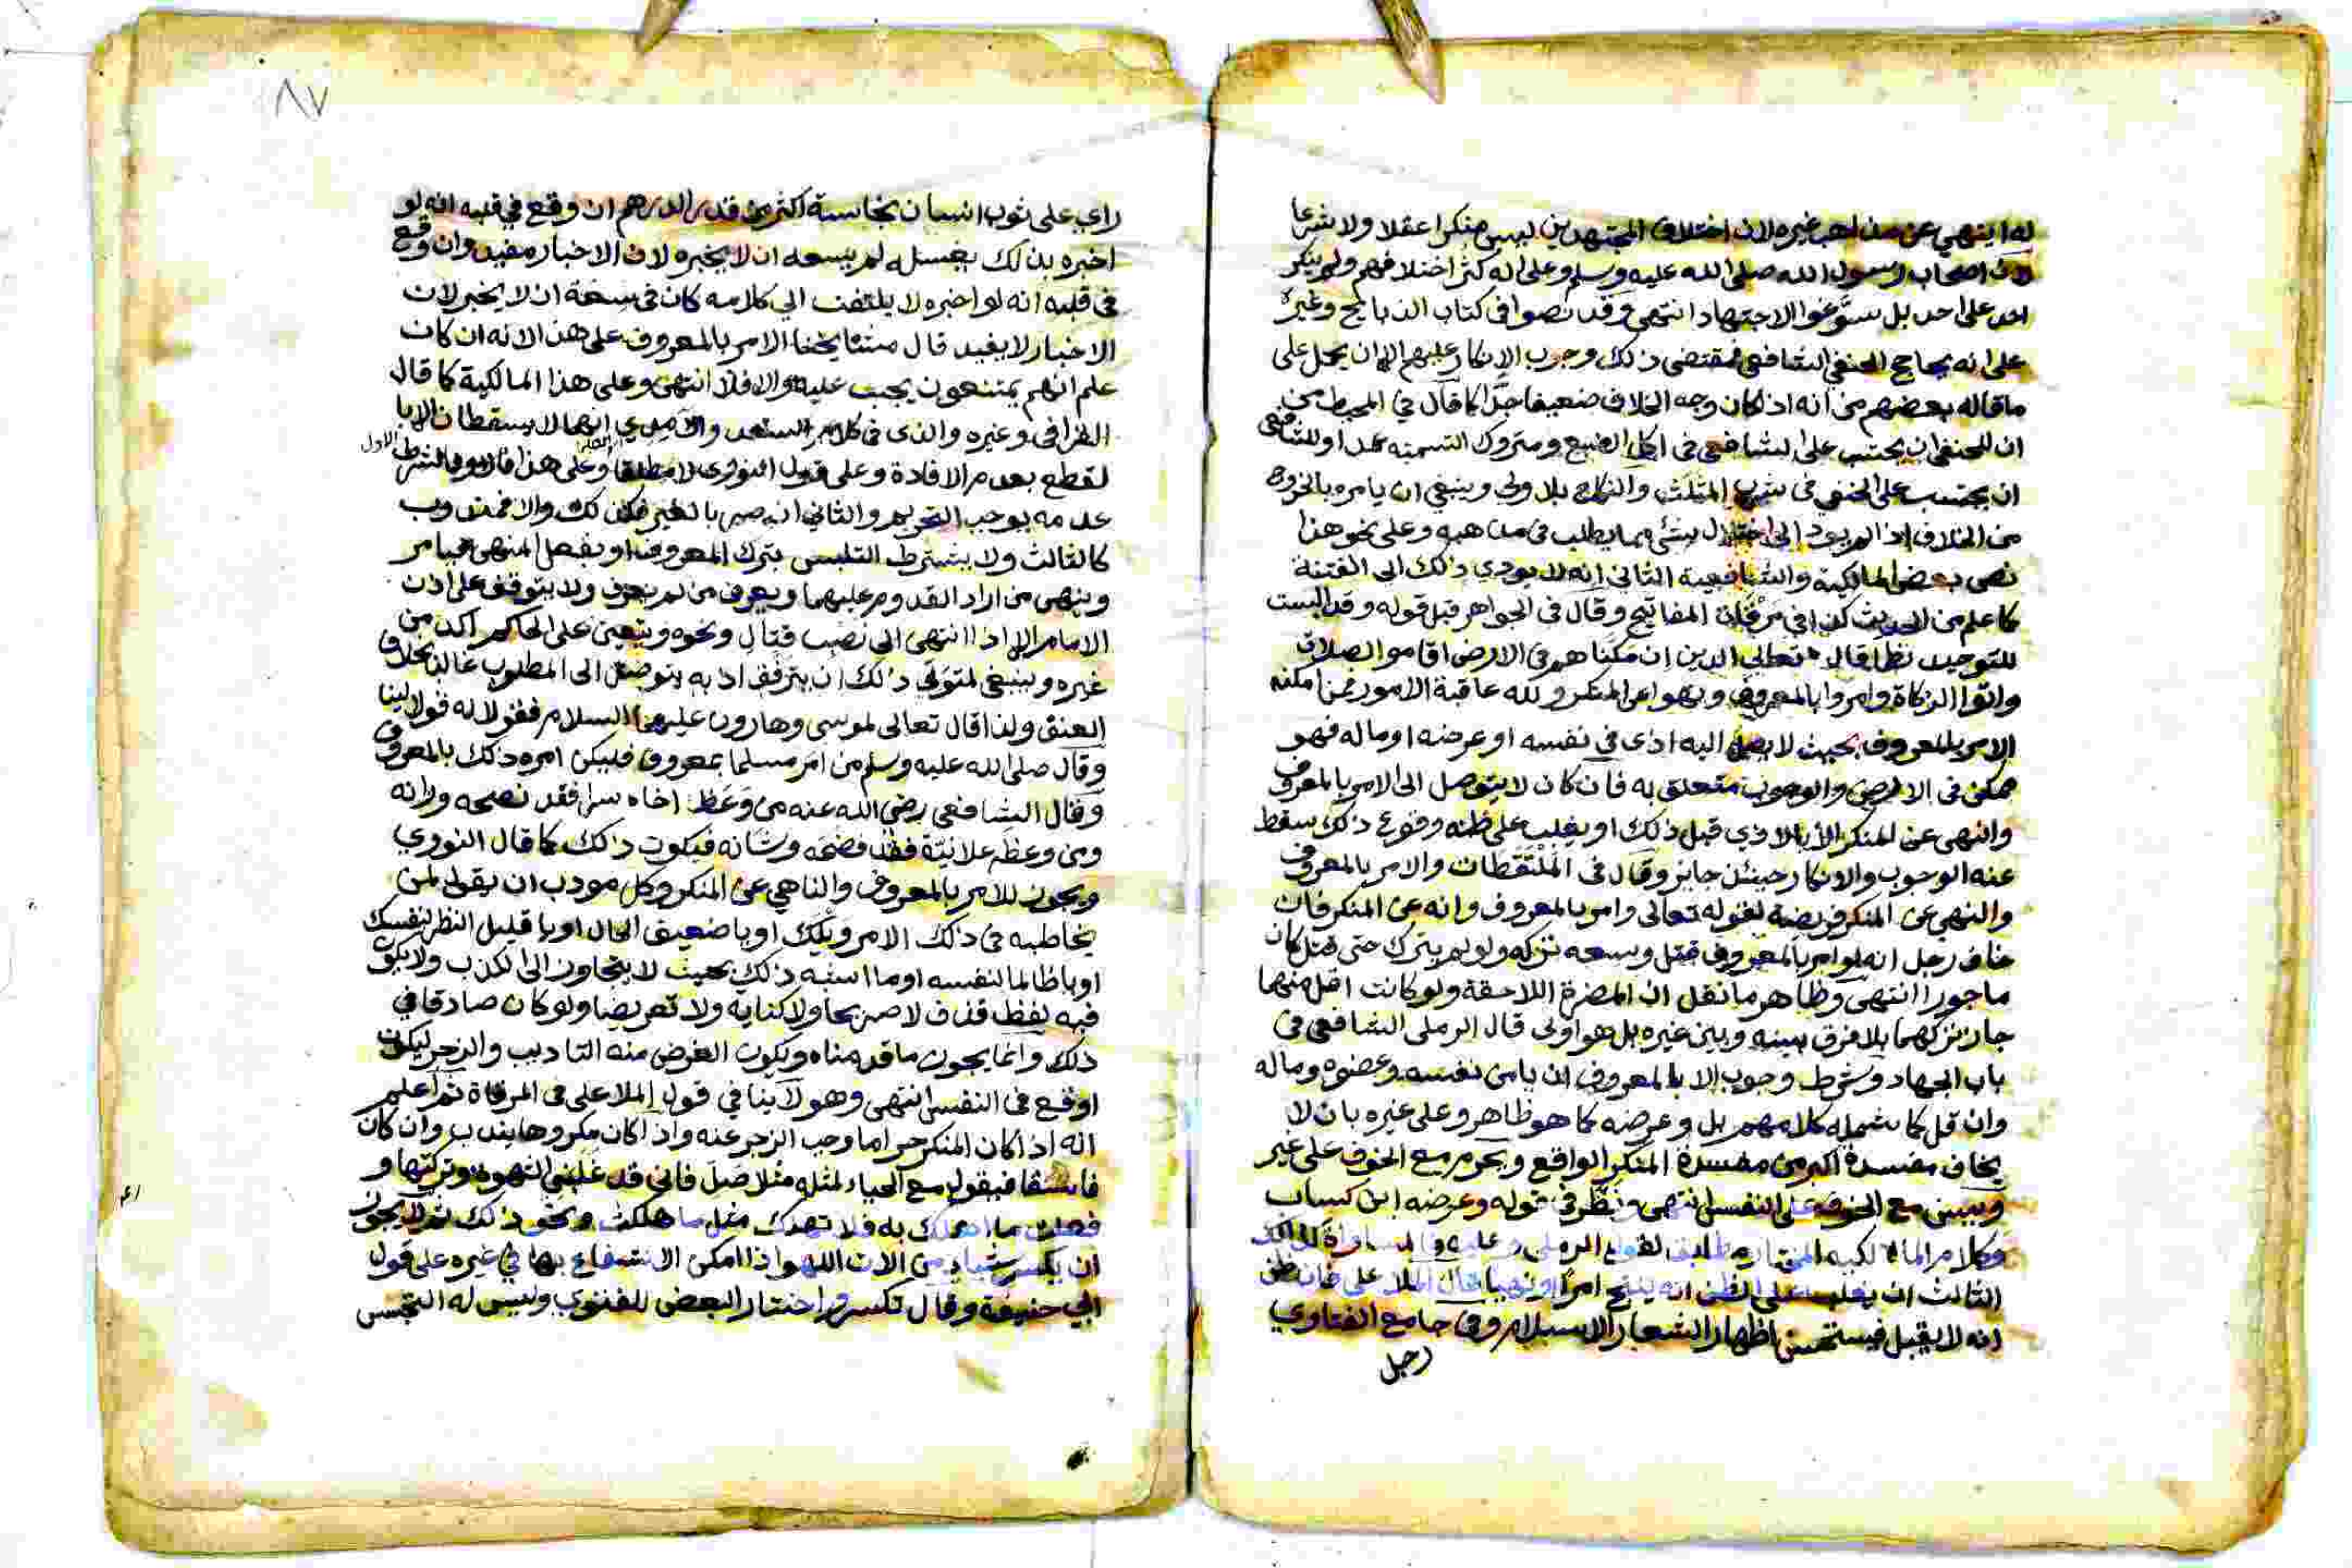 له اينهي عن مذاهب غيره لان اختلاف المجتهدين ليس منكرا عقلا ولا شرعا
لان اصحاب رسول الله صلى الله عليه وسلم وعلى اله كثر اختلافهم ولم ينكر
احد على احد بل سوغوا الاجتهاد انتهى وقد نصوا في كتاب الذبايح وغيره
على انه يحاج الحنفي الشافعي فمقتضى ذلك وجوب الانكار عليهم الا ان يحمل على
ماقاله بعضهم من انه اذا كان وجه الخلاف ضعيفا جدا كما قال في المحيط من
ان للحنفي ان يحتسب على الشافعي في اكل الضبع ومتروك التسمية عمدا وللشافعي
ان يحتسب على الحنفي في شرب المثلث والنكاح بلا ولي وينبغي ان يامره بالخروج
من الخلاف اذا لم يعد الى اختلال بشئ مما يطلب في مذهبه وعلى نحو هذا
نص بعض المالكية والشافعية الثاني انه لا يودي ذلك الى الفتنة
كما علم من الحديث كذا في مرقاة المفاتيح وقال في الجواهر قبل قوله وقد
للتوحيد نظرا قال تعالى الذين ان مكناهم في الارض اقاموا الصلاة
واتوا الزكاة وامروا بالمعروف ونهوا عن المنكر ولله عاقبة الامور فمن امكنه
الامر بالمعروف بحيث لا يصل اليه اذى في نفسه او عرضه او ماله فهو
ممكن في الارض والوجوب متعلق به فان كان لا يتوصل الى الامر بالمعروف
والنهي عن المنكر الا بالاذي قبل ذلك او يغلب على ظنه وقوع ذلك سقط
عنه الوجوب والانكار حينئذ جايز وقال في الملتقطات والامر بالمعروف
والنهي عن المنكر فريضة لقوله تعالى وامر بالمعروف وانه عن المنكر فان
خاف رجل انه لو امر بالمعروف قتل وسعه تركه ولو لم يترك حتى قتل كان
ماجورا انتهى وظاهر ما نقل ان المضرة اللاحقة ولو كانت اقل منهما
جاز تركهما بلا فرق بينه وبين غيره بل هو اولى قال الرملي الشافعي في
باب الجهاد وشرط وجوب الامر بالمعروف ان يامن نفسه وعضوه وماله
وان قل كما شمله كلامهم بل وعرضه كما هو ظاهر وعلى غيره بان لا
يخاف مفسدة اكبر من مفسدة المنكر الواقع ويحرم مع الخوف على غير
ويسن مع الخوف على النفس انتهى ونظر في قوله وعرضه ابن
وكلام
الثالث ان يغلب على الظن انه ينجح امرا ونهيا قال الملا على فان ظن
انه لا يقبل فيستحسن اظهار الشعار الاسلام وفي جامع الفتاوي
رجل
٨٧
راي على ثوب انسان نجاسة اكثر من قدر الدرهم ان وقع في قلبه انه لو
اخبره بذلك يغسله لم يسعه ان لا يخبره لان الاخبار مفيد وان وقع
في قلبه انه لو اخبره لا يلتفت الي كلامه كان في سعة ان لا يخبر لان
الاخبار لا يفيد قال مشايخنا الامر بالمعروف على هذا لانه ان كان
علم انهم يمتنعون يجب عليه والا فلا انتهى وعلى هذا المالكية كما قال
القرافى وغيره والذى في كلام السعد والآمدي انهما لا يسقطان الا با
لقطع بعدم الافادة وعلى قول النووى لا مطلقا وعلى هذا الشرط الاول
عدمه يوجب التحريم والثاني انه ضر بالغير فكذلك والا فمندوب
كالثالث ولا يشترط التلبس بترك المعروف او بفعل المنهى فيامر
وينهى من اراد القدوم عليهما ويعرف من لم يعرف ولا يتوقف على اذن
الامام الا اذا انتهى الى نصب قتال ونحوه ويتعين على الحاكم اكد من
غيره وينبغى لمتولى ذلك ان يترفق اذ به يتوصل الى المطلوب غالبا بخلاف
العنف ولذا قال تعالى لموسى وهارون عليهما السلام فقولا له قولا لينا
وقال صلى الله عليه وسلم من امر مسلما بمعروف فليكن امره ذلك بالمعروف
وقال الشافعى رضى الله عنه من وعظ اخاه سرا فقد نصحه وزانه
ومن وعظه علانية فقد فضحه وشانه فيكون ذلك كما قال النووي
ويجوز للامر بالمعروف والناهي عن المنكر وكل مودب ان يقول لمن
يخاطبه في ذلك الامر ويلك او يا ضعيف الحال او يا قليل النظر لنفسك
او يا ظالما لنفسه او ما اشبه ذلك بحيث لا يتجاوز الى الكذب ولا يكون
فيه لفظ قذف لا صريحا ولا كناية ولا تعريضا ولو كان صادقا في
ذلك وانما يجوز ما قدمناه ويكون الغرض منه التاديب والزجر ليكون
اوقع في النفس انتهى وهو لا ينافي قول الملا على في المرقاة ثم اعلم
انه اذا كان المنكر حراما وجب الزجر عنه واذا كان مكروها يندب وان كان
فاسقا فيقول مع الحياء لمثله مثلا صل فاني قد غلبني الشهوة وتركتها و
فعلت ما اهلك به فلا تهلك مثل ما هلكت ونحو ذلك ثم لا يجوز
ان يكسر شيا من الات اللهو اذا امكن الانتفاع بها في غيره على قول
ابي حنيفة وقال تكسر واختار البعض للفتوي وليس له التجسس